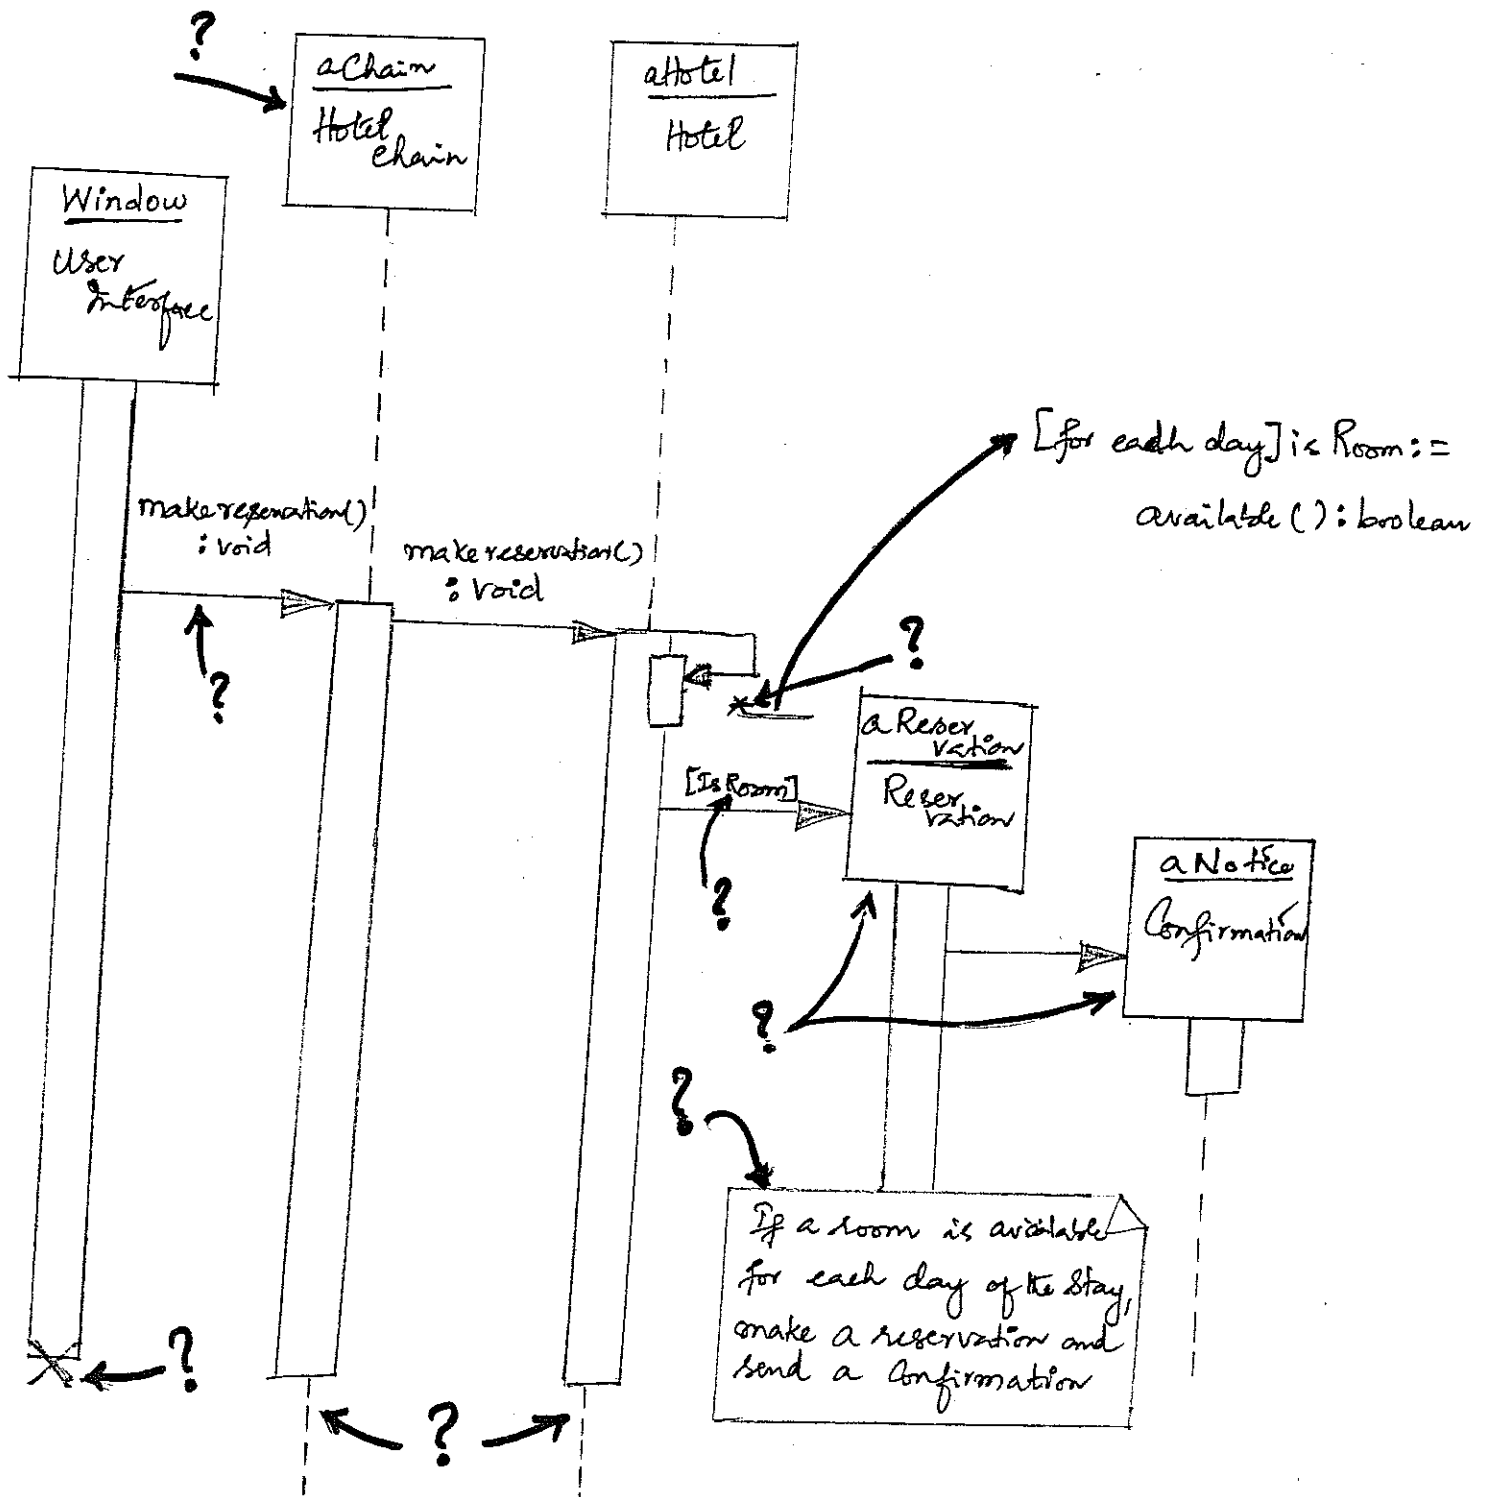 ?
aChain
Hotel
Chain
aHotel
Hotel
Window
User
Interface
[for each day] is Room :=
available() : boolean
make reservation()
: void
make reservation()
: void
?
?
a Reser
vation
Reser
vation
[IsRoom]
?
a Notice
Confirmation
?
?
If a room is available
for each day of the Stay,
make a reservation and
send a Confirmation
?
?